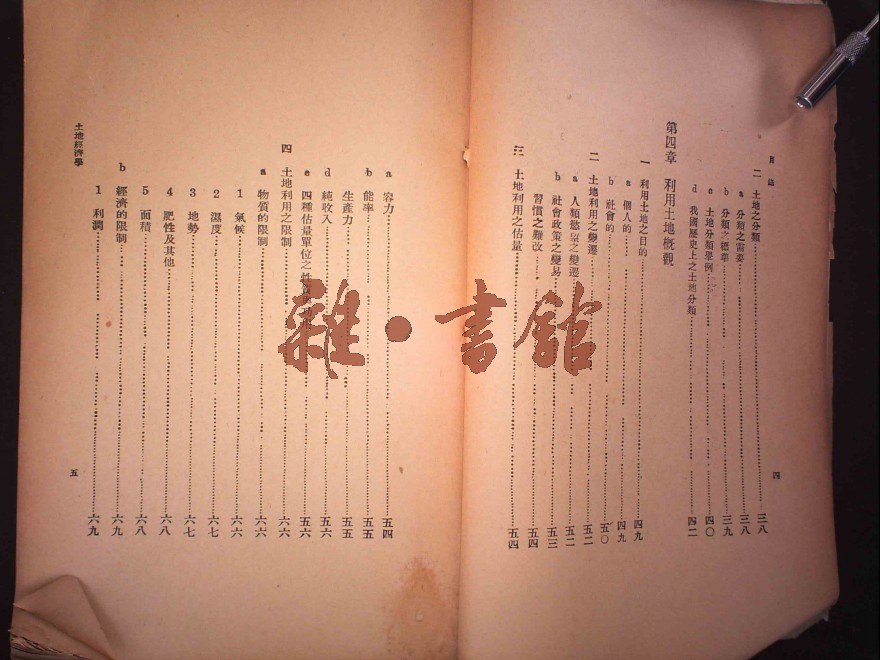 目錄
二 土地之分類 三八
a 分類之需要 三八
b 分類之標準 三九
c 土地分類舉例 四〇
d 我國歷史上之土地分類 四二
第四章 利用土地概觀
一 利用土地之目的 四九
a 個人的 四九
b 社會的 五〇
二 土地利用之變遷 五二
a 人類慾望之變遷 五二
b 社會政策之變易 五三
習慣之難改 五四
三 土地利用之估量 五四
四
a 容力 五四
b 能率 五五
生產力 五五
d 純收入 五六
e 四種估量單位之性質 五六
四 土地利用之限制 六六
a 物質的限制 六六
1 氣候 六六
2 濕度 六七
3 地勢 六七
4 肥性及其他 六八
5 面積 六八
b 經濟的限制 六九
1 利潤 六九
土地經濟學
五
雜·書館